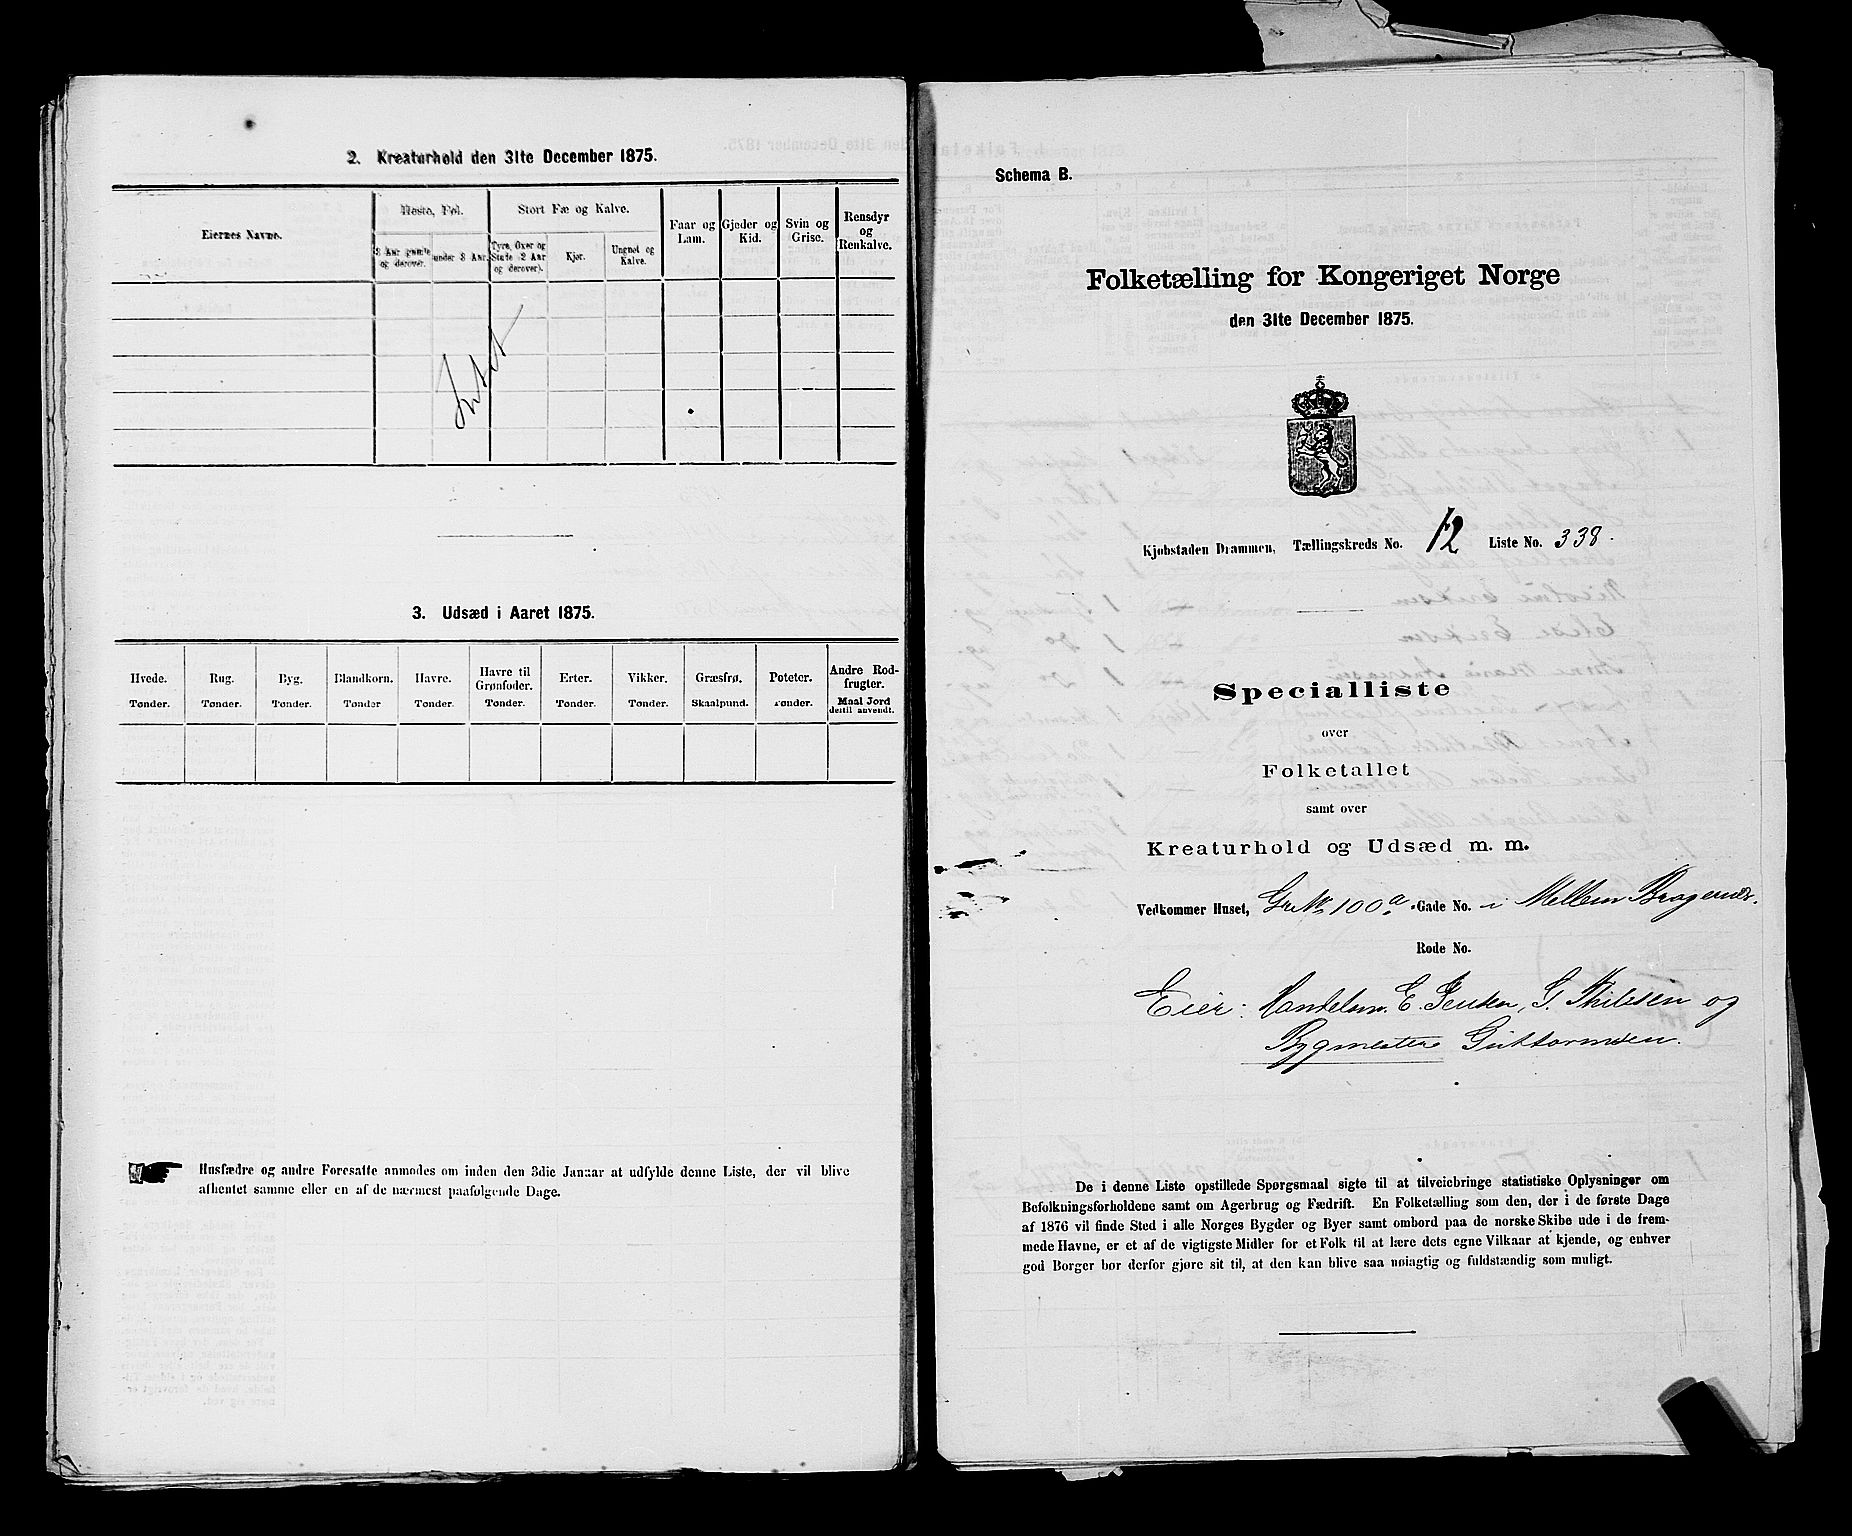 2. Kreaturhold den 31te December 1875.
Eiernes Navne.
Heste, Føl.
Stort Fæ og Kalve.
Faar og Lam.
Gjeder og Kid.
Svin og Grise.
Rensdyr og Renkalve.
3 Aar gamle og derover.
under 3 Aar.
Tyre, Oxer og Stude (2 Aar og derover).
Kjør.
Ungnøt og Kalve.
Intet
3. Udsæd i Aaret 1875.
Hvede. Rug. Byg. Blandkorn. Havre. Havre til Grønfoder. Erter. Vikker. Græsfrø. Poteter. Andre Rod-frugter.
Tønder. Tønder. Tønder. Tønder Tønder. Tønder. Tønder. Tønder. Skaalpund. Tønder. Maal Jord dertil anvendt.
Husfædre og andre Foresatte anmodes om inden den 3die Januar at udfylde denne Liste, der vil blive
afhentet samme eller en af de nærmest paafølgende Dage.
Schema B.
Folketælling for Kongeriget Norge
den 31te December 1875.
Kjøbstaden Drammen, Tællingskreds No. 12 Liste No. 338.
Specialliste
over
Folketallet
samt over
Kreaturhold og Udsæd m. m.
Vedkommer Huset, Gr. No. 100a. Gade No. i Mellem Bragernæs.
Rode No.
Eier: Handelsm. E. Jensen, G. Thilesen og
Bygmester Guttormsen.
De i denne Liste opstillede Spørgsmaal sigte til at tilveiebringe statistiske Oplysninger om
Befolkningsforholdene samt om Agerbrug og Fædrift. En Folketælling som den, der i de første Dage
af 1876 vil finde Sted i alle Norges Bygder og Byer samt ombord paa de norske Skibe ude i de frem-
mede Havne, er et af de vigtigste Midler for et Folk til at lære dets egne Vilkaar at kjende, og enhver
god Borger bør derfor gjøre sit til, at den kan blive saa nøiagtig og fuldstændig som muligt.